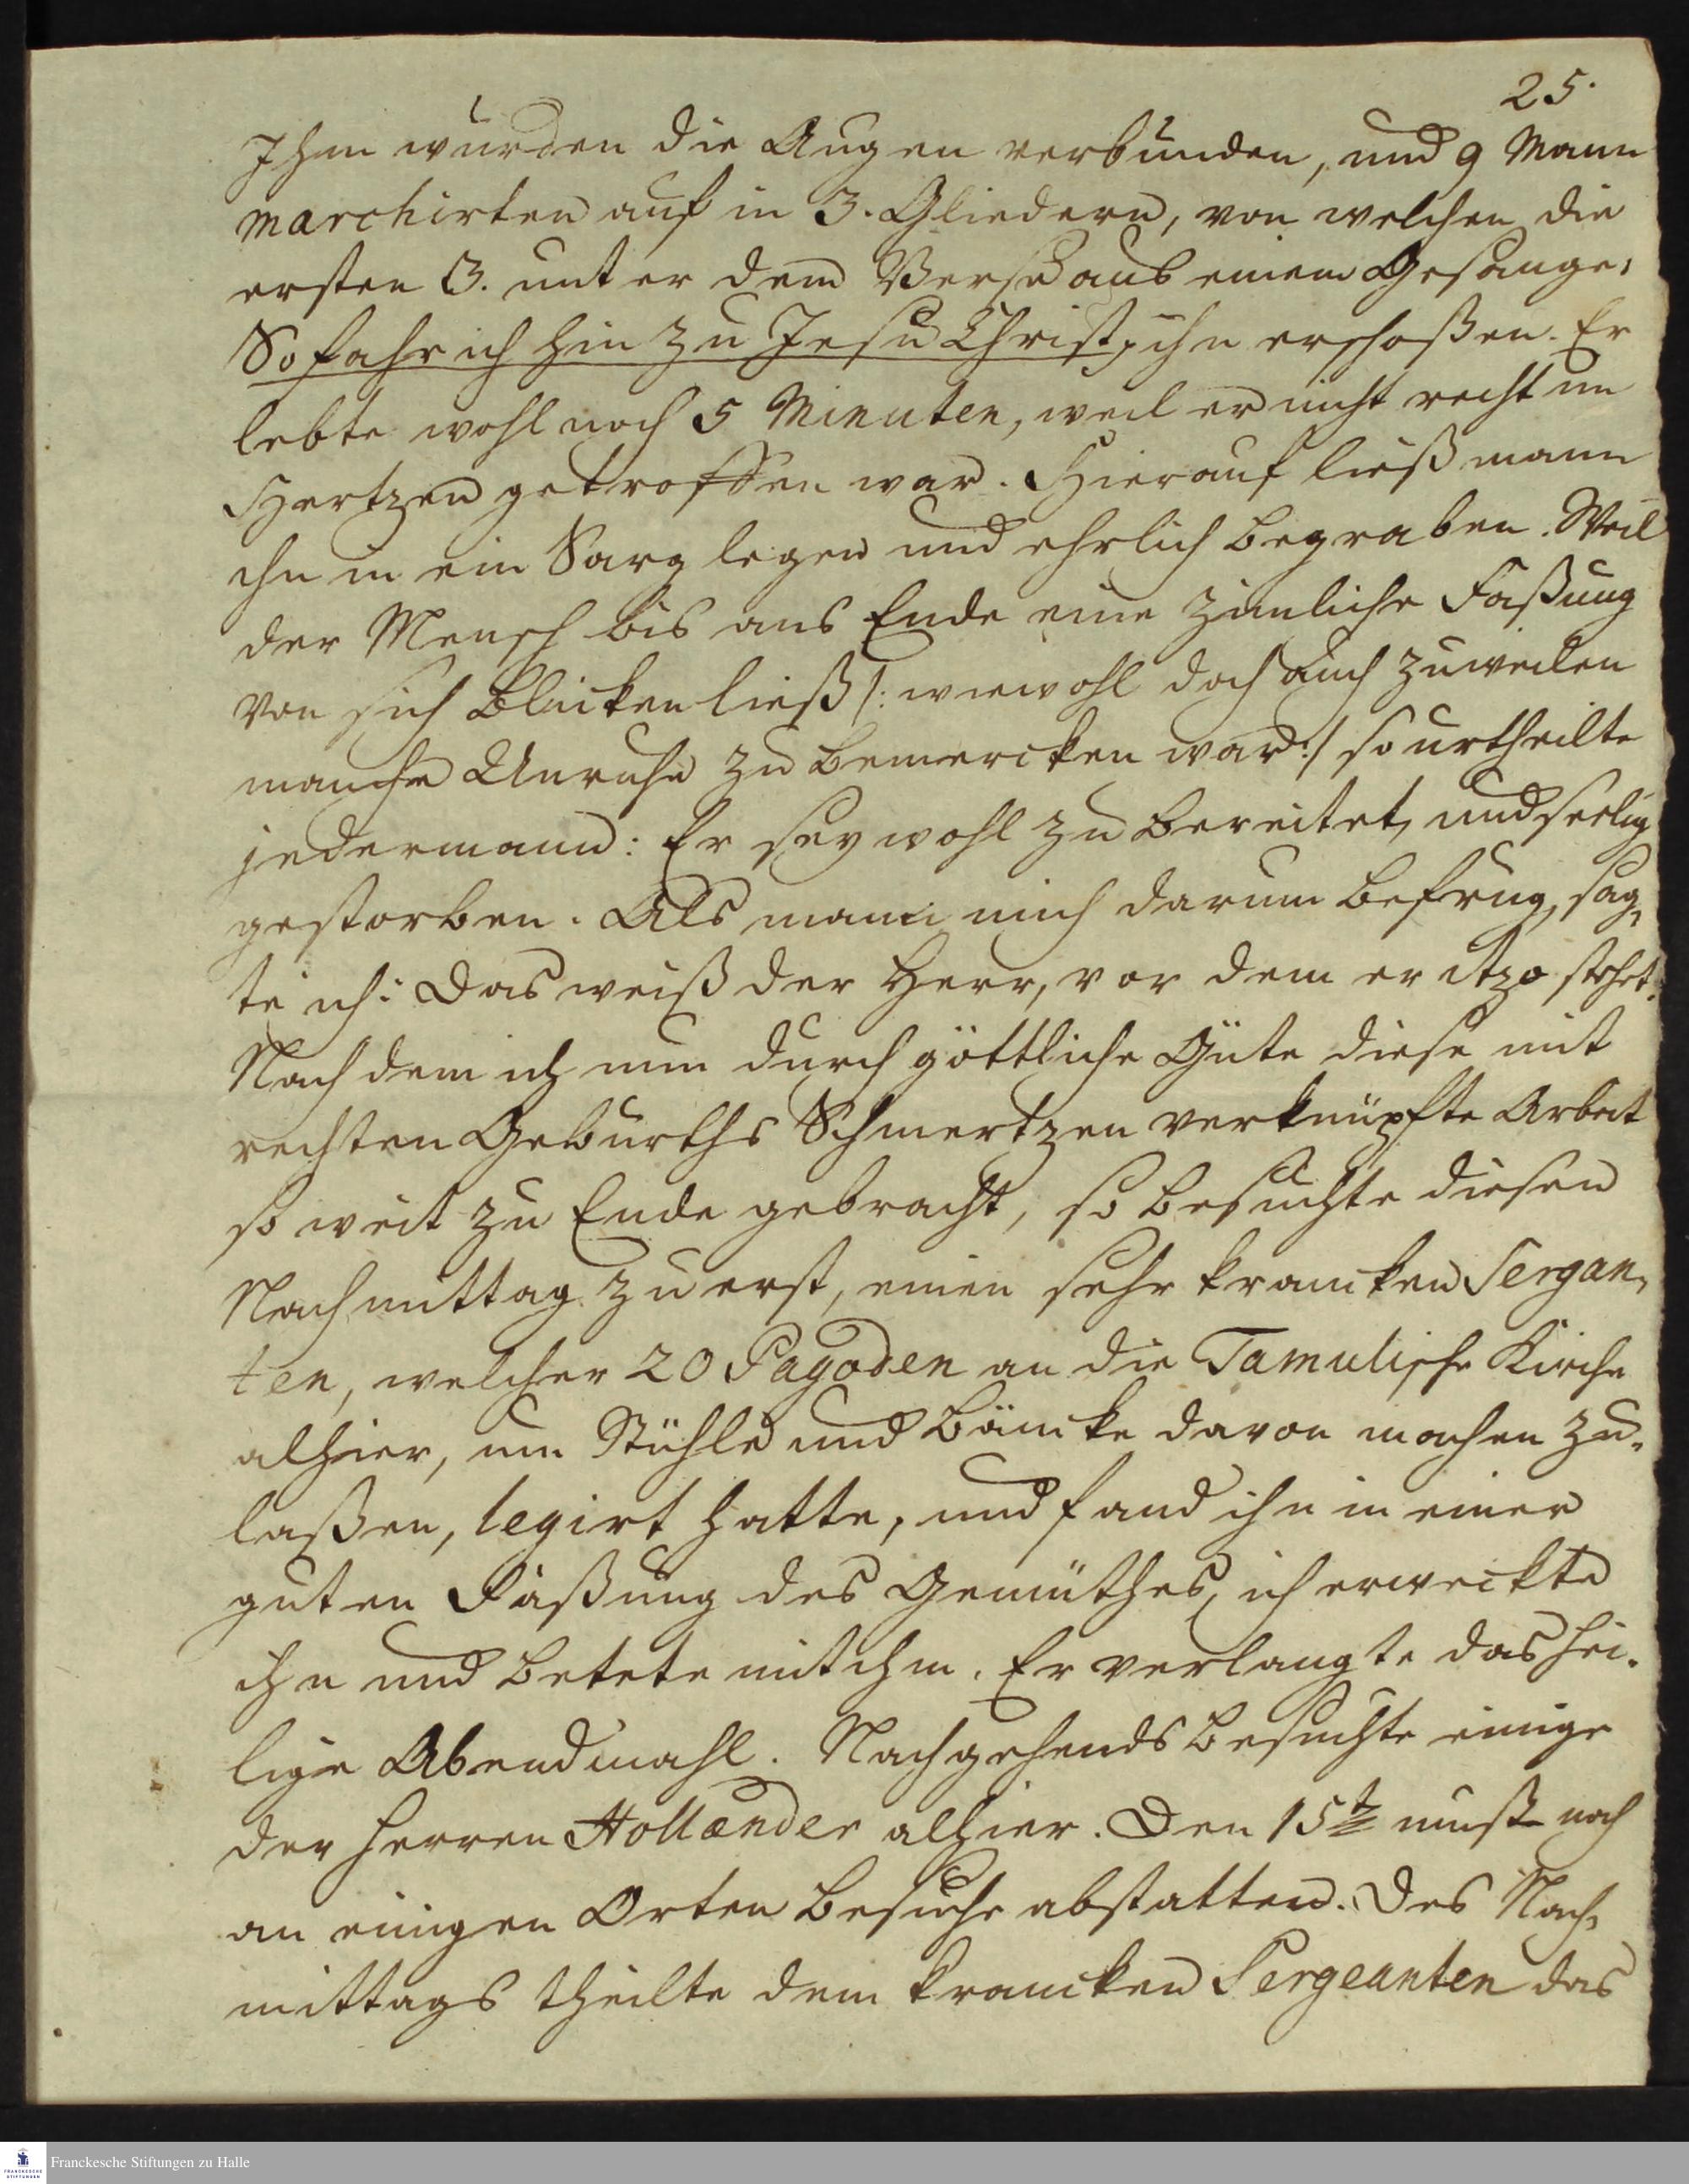 25.
Ihm wurden die Augen verbunden, und 9 Mann
marchirten auf in 3. Gliedern, von welchen die
ersten 3. unter dem Verse aus einem Gesange:
So fahr ich hin zu Jesu Christ, ihn erschoßen. Er
lebte wohl noch 5 Minuten, weil er nicht recht im
Hertzen getroffen war. Hierauf ließ mann
ihn in ein Sarg legen und ehrlich begraben. Weil
der Mensch bis ans Ende eine zimliche Faßung
von sich blicken ließ /: wiewohl doch auch zuweilen
manche Unruhe zu bemercken war :/ so urtheilte
jedermann: Er sey wohl zu bereitet, und seelig
gestorben. Als mann mich darum befrug, sag,
te ich: Das weiß der Herr, vor dem er itzo stehet.
Nach dem ich nun durch göttliche Güte diese mit
rechten Geburths Schmertzen verknüpfte Arbeit
so weit zu Ende gebracht, so besuchte diesen
Nachmittag zu erst, einen sehr krancken Sergan,
ten, welcher 20 Pagoden an die Tamulische Kirche
alhier, um Stühle und Bäncke davon machen zu
laßen, legirt hatte, und fand ihn in einer
guten Faßung des Gemüthes, ich erweckte
ihn und betete mit ihm. Er verlangte das hei,
lige Abendmahl. Nachgehends besuchte einige
der Herren Hollænder alhier. Den 15t muste noch
an einigen Orten Besuche abstatten. Des Nach,
mittags theilte dem krancken Sergeanten das
Franckesche Stiftungen zu Halle